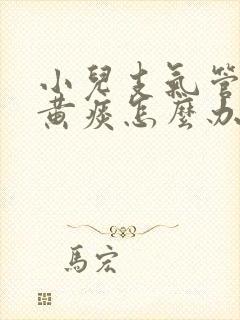 小兒支氣管
黃痰怎麼办
馬宏